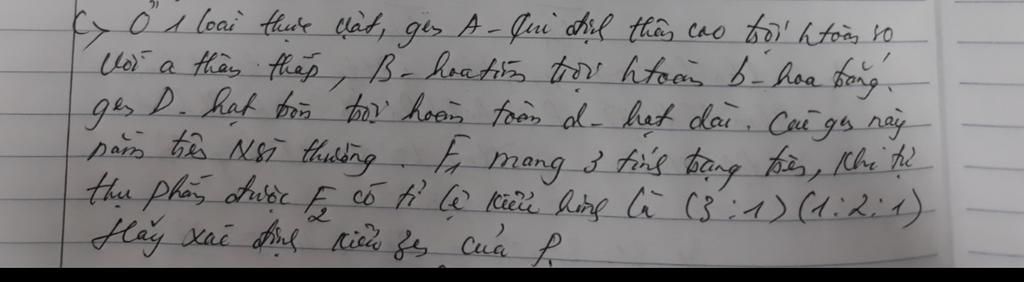 c, Ở 1 loài thực vật, gen A - Qui định thân cao trội htoàn so
với a thân thấp, B - hoa tím trội htoàn b - hoa trắng.
gen D - hạt tròn trội hoàn toàn d - hạt dài. Các gen này
nằm trên NST thường. F1 mang 3 tính trạng trên, khi tự
thụ phấn được F2 có tỉ lệ kiểu hình là (3:1)(1:2:1)
Hãy xác định kiểu gen của P.